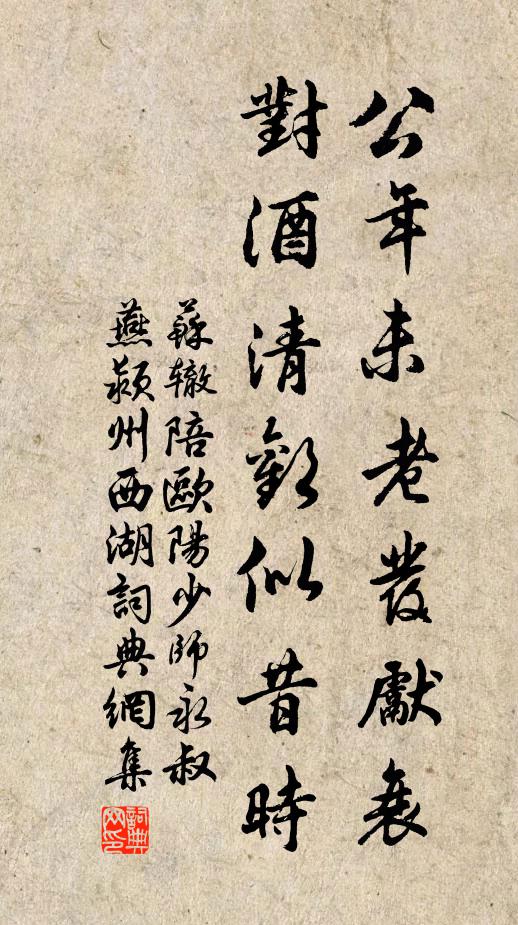 公年未老發獻衰
對酒清歡似昔時
蘇轍陪歐陽少師永叔
燕潁州西湖詞典網集
詞典
网印